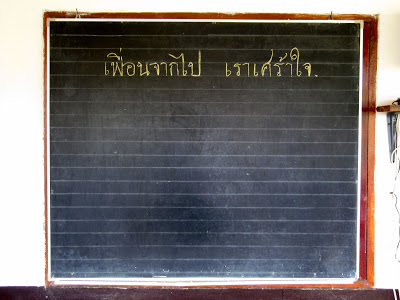 เพื่อนจากไป เราเศร้าใจ.